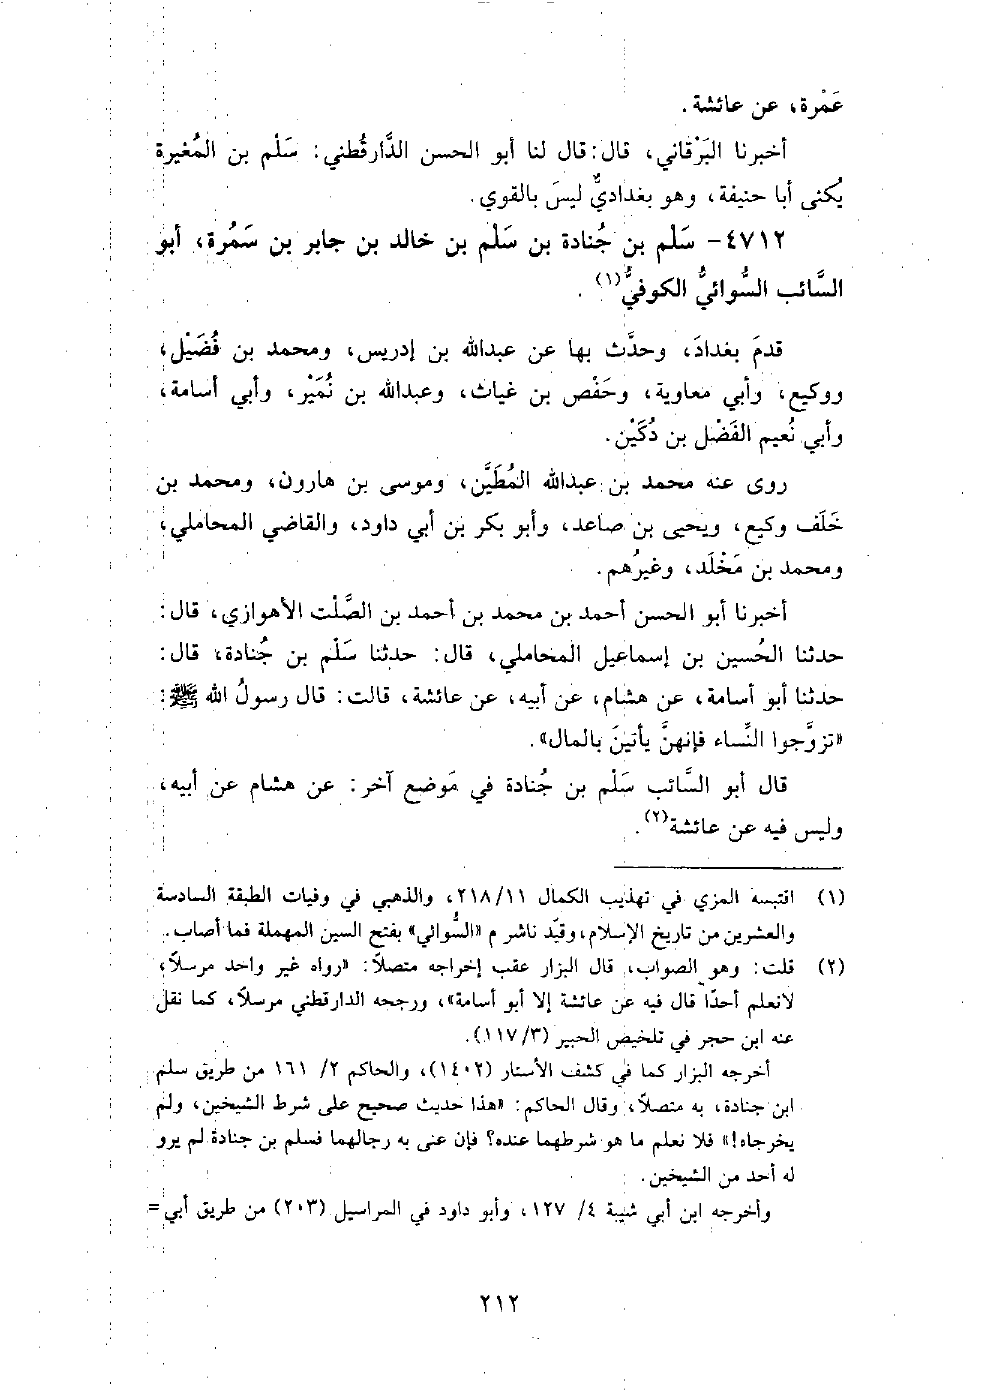 عَمْرة، عن عائشة.
أخبرنا البَرْقاني، قال: قال لنا أبو الحسن الدَّارقُطني: سَلْم بن المُغيرة
يُكنى أبا حنيفة، وهو بغداديٌّ ليسَ بالقوي.
٤٧١٢- سَلْم بن جُنادة بن سَلْم بن خالد بن جابر بن سَمُرة، أبو
السَّائب السُّوائيُّ الكوفيُّ(١).
قدمَ بغدادَ، وحدَّث بها عن عبدالله بن إدريس، ومحمد بن فُضَيْل،
ووكيع، وأبي معاوية، وحَفْص بن غياث، وعبدالله بن نُمَيْر، وأبي أسامة،
وأبي نُعيم الفَضْل بن دُكَيْن.
روى عنه محمد بن عبدالله المُطَيَّن، وموسى بن هارون، ومحمد بن
خَلَف وكيع، ويحيى بن صاعد، وأبو بكر بن أبي داود، والقاضي المحاملي،
ومحمد بن مَخْلَد، وغيرُهم.
أخبرنا أبو الحسن أحمد بن محمد بن أحمد بن الصَّلْت الأهوازي، قال:
حدثنا الحُسين بن إسماعيل المحاملي، قال: حدثنا سَلْم بن جُنادة، قال:
حدثنا أبو أسامة، عن هشام، عن أبيه، عن عائشة، قالت: قال رسولُ الله ﷺ:
«تزوَّجوا النِّساء فإنهنَّ يأتينَ بالمال».
قال أبو السَّائب سَلْم بن جُنادة في مَوضع آخر: عن هشام عن أبيه،
وليس فيه عن عائشة(٢).
(١) اقتبسه المزي في تهذيب الكمال ٢١٨/١١، والذهبي في وفيات الطبقة السادسة
والعشرين من تاريخ الإسلام، وقيّد ناشر م «السُّوائي» بفتح السين المهملة فما أصاب.
(٢) قلت: وهو الصواب، قال البزار عقب إخراجه متصلاً: «رواه غير واحد مرسلاً،
لانعلم أحدًا قال فيه عن عائشة إلا أبو أسامة»، ورجحه الدارقطني مرسلاً، كما نقل
عنه ابن حجر في تلخيص الحبير (١١٧/٣).
أخرجه البزار كما في كشف الأستار (١٤٠٢)، والحاكم ٢/ ١٦١ من طريق سلم
ابن جنادة، به متصلاً، وقال الحاكم: «هذا حديث صحيح على شرط الشيخين، ولم
يخرجاه!» فلا نعلم ما هو شرطهما عنده؟ فإن عنى به رجالهما فسلم بن جنادة لم يرو
له أحد من الشيخين.
وأخرجه ابن أبي شيبة ٤/ ١٢٧، وأبو داود في المراسيل (٢٠٣) من طريق أبي=
٢١٢